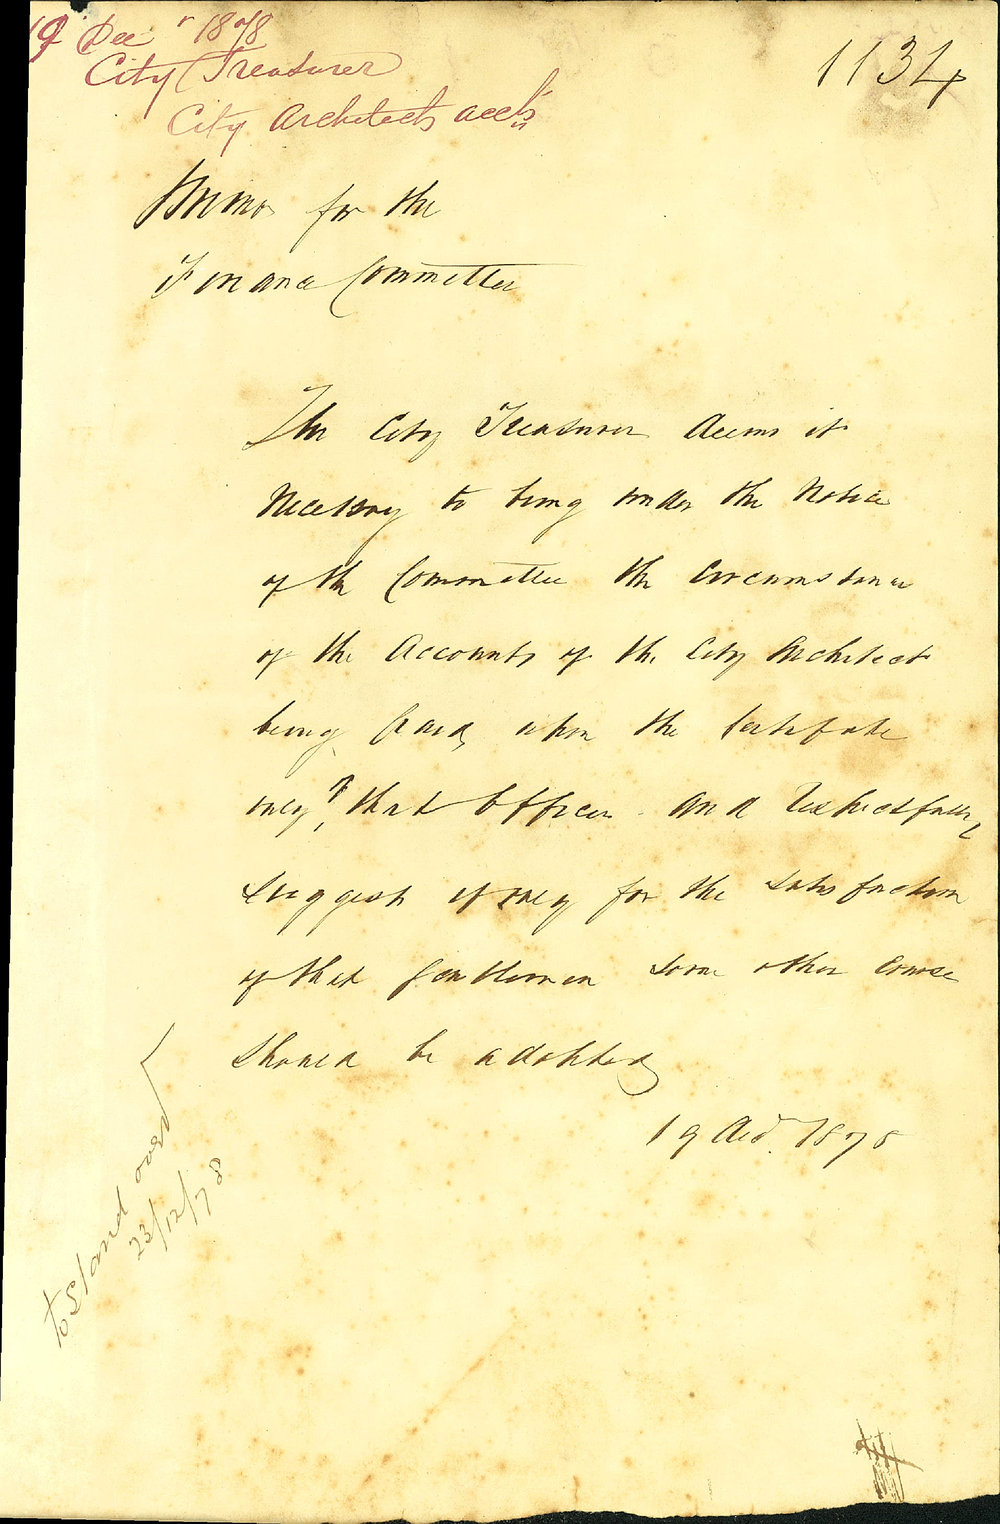 19 Decr 1878
City Treasurer
City Architects accts
1134
Memo for the
Finance Committee
The City Treasurer deems it
Necessary to bring under the Notice
of the Committee the Circumstance
of the Accounts of the City Architect
being paid upon the Certificate
only of that Officer and respectfully
suggest if only for the satisfaction
of that Gentleman some other course
should be adopted
19 Decr 1878
To Stand over
23/12/78